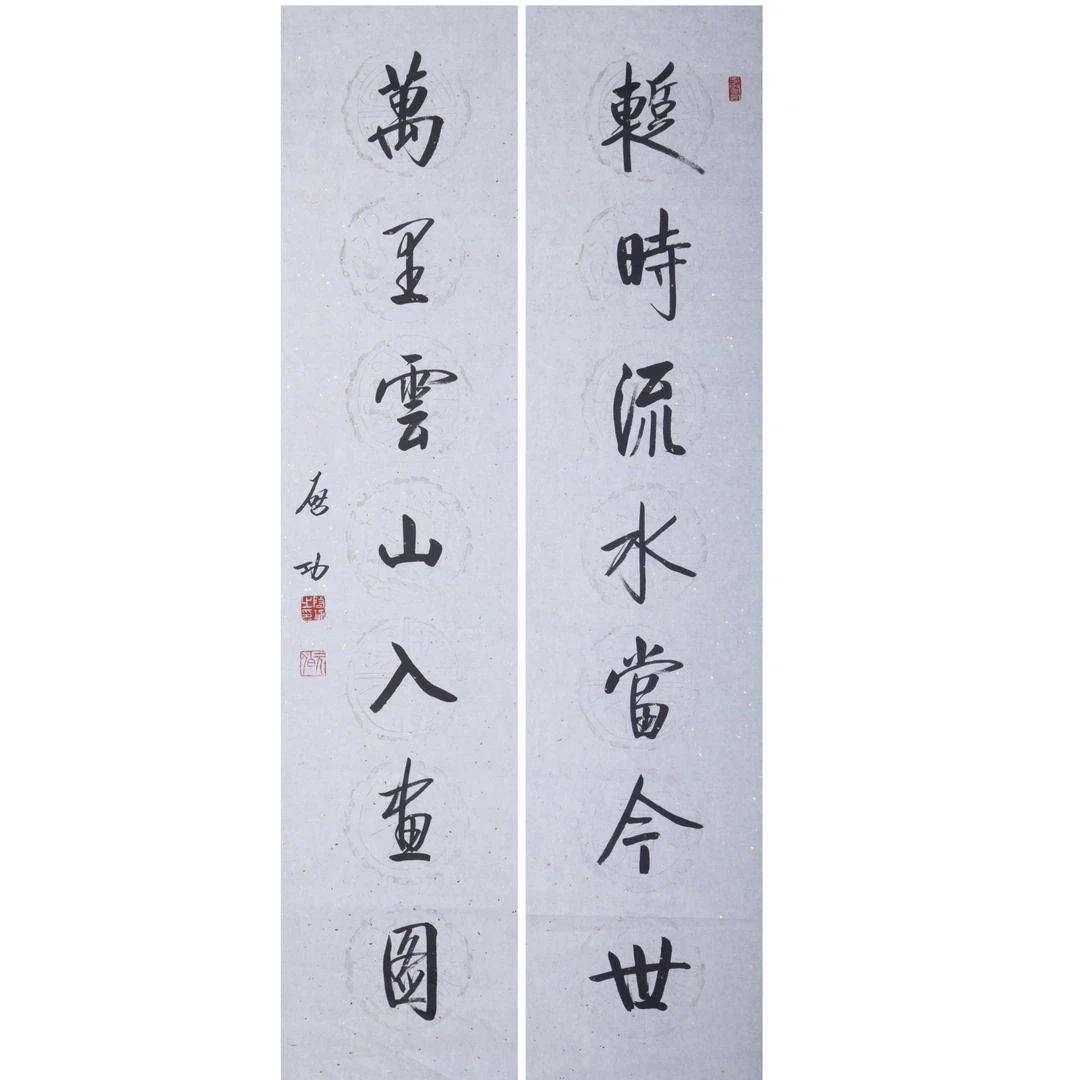 暫時流水當今世
萬里雲山入畫圖
啟功